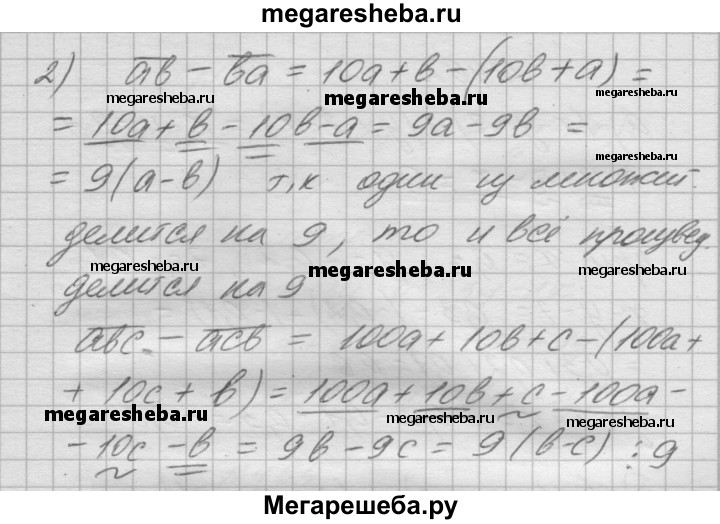 megaresheba.ru
2) ab̅ − ва̅ = 10a+в−(10в+a) =
megaresheba.ru megaresheba.ru megaresheba.ru
= 10a+в−10в−a = 9a−9в =
megaresheba.ru
= 9(a−в) т,к один из множит.
делится на 9, то и всё произвед.
megaresheba.ru megaresheba.ru megaresheba.ru
делится на 9
авс − асв = 100a+10в+с−(100a+
+ 10с+в) = 100a+10в+с−100a−
megaresheba.ru megaresheba.ru megaresheba.ru
−10с−в = 9в−9с = 9(в−с) ⋮ 9
Мегарешеба.ру